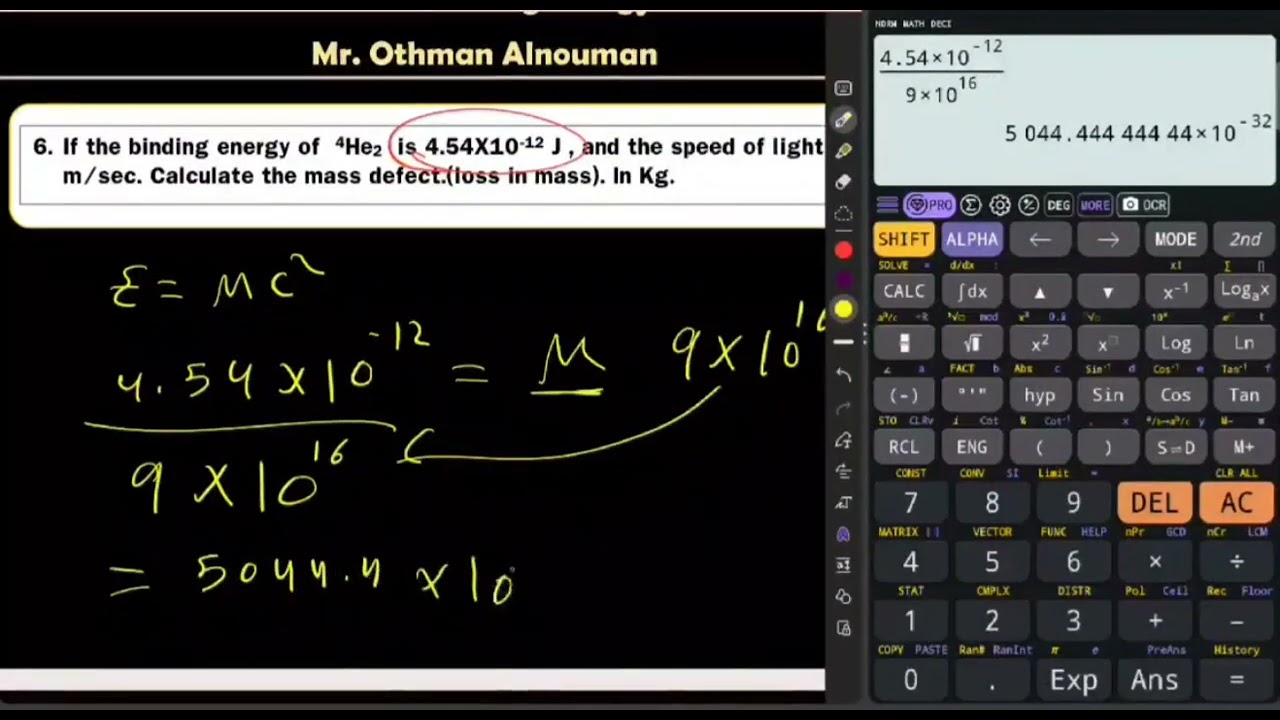 Mr. Othman Alnouman
6. If the binding energy of ⁴He₂ is 4.54X10⁻¹² J , and the speed of light
m/sec. Calculate the mass defect.(loss in mass). In Kg.
E = Mc²
4.54 x 10⁻¹² = M 9 x 10¹⁶
9 x 10¹⁶
= 5044.4 x 10
NORM MATH DECI
4.54×10⁻¹²
9×10¹⁶
5 044.444 444 44×10⁻³²
PRO Σ DEG MORE OCR
SHIFT ALPHA ← → MODE 2nd
SOLVE = d/dx : x! Σ ∏
CALC ∫dx ▲ ▼ x⁻¹ Logₐx
√ x² x Log Ln
∠ a FACT b Abs c Sin⁻¹ d Cos⁻¹ e Tan⁻¹ f
(-) °'" hyp Sin Cos Tan
STO CLRv i Cot % Cot⁻¹ , x y M- m
RCL ENG ( ) S⇔D M+
CONST CONV SI Limit ∞ CLR ALL
7 8 9 DEL AC
MATRIX [ ] VECTOR FUNC HELP nPr GCD nCr LCM
4 5 6 × ÷
STAT CMPLX DISTR Pol Ceil Rec Floor
1 2 3 + −
COPY PASTE Ran# RanInt π e PreAns History
0 . Exp Ans =